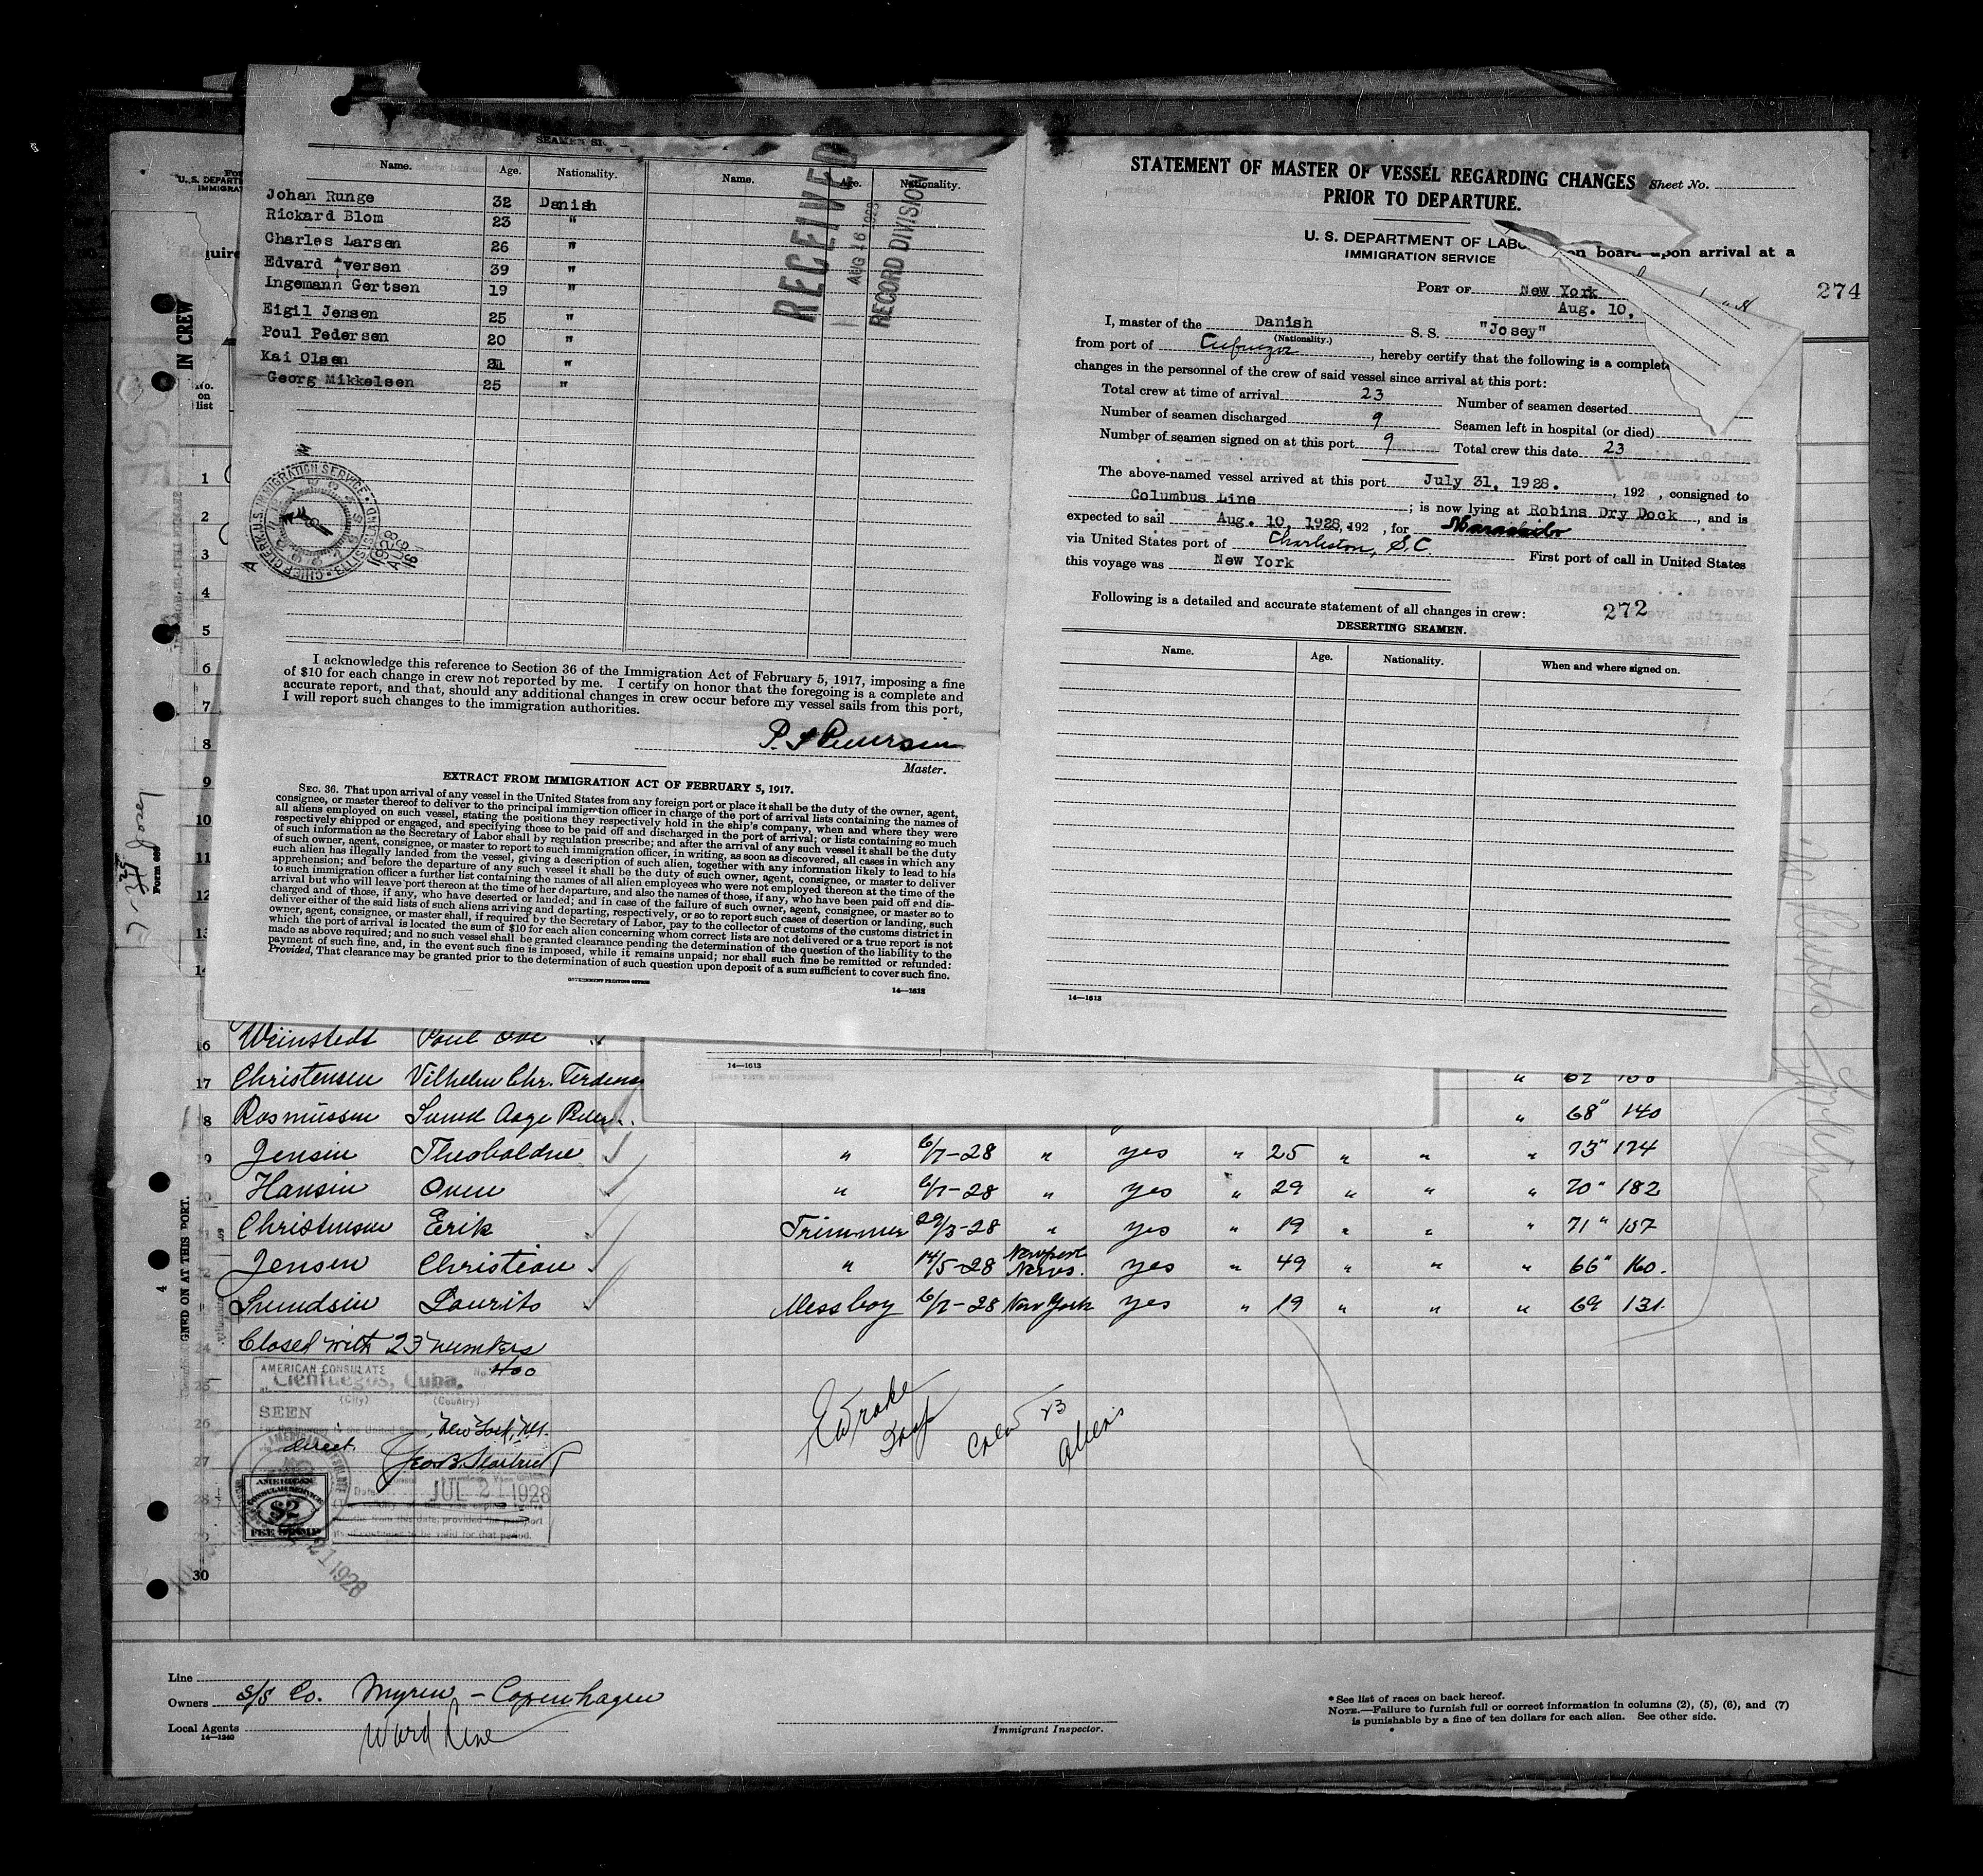 SEAMEN
Name. Age. Nationality. Name. Age. Nationality.
Johan Runge 32 Danish
Rickard Blom 23 "
Charles Larsen 26 "
Edvard Iversen 39 "
Ingemann Gertsen 19 "
Eigil Jensen 25 "
Poul Pedersen 20 "
Kai Olsen 21 "
Georg Mikkelsen 25 "
RECEIVED
AUG 16 1928
RECORD DIVISION
CHIEF CLERK U.S. IMMIGRATION SERVICE
1928
AUG
16
I acknowledge this reference to Section 36 of the Immigration Act of February 5, 1917, imposing a fine
of $10 for each change in crew not reported by me. I certify on honor that the foregoing is a complete and
accurate report, and that, should any additional changes in crew occur before my vessel sails from this port,
I will report such changes to the immigration authorities.
Master.
EXTRACT FROM IMMIGRATION ACT OF FEBRUARY 5, 1917.
SEC. 36. That upon arrival of any vessel in the United States from any foreign port or place it shall be the duty of the owner, agent,
consignee, or master thereof to deliver to the principal immigration officer in charge of the port of arrival lists containing the names of
all aliens employed on such vessel, stating the positions they respectively hold in the ship's company, when and where they were
respectively shipped or engaged, and specifying those to be paid off and discharged in the port of arrival; or lists containing so much
of such information as the Secretary of Labor shall by regulation prescribe; and after the arrival of any such vessel it shall be the duty
of such owner, agent, consignee, or master to report to such immigration officer, in writing, as soon as discovered, all cases in which any
such alien has illegally landed from the vessel, giving a description of such alien, together with any information likely to lead to his
apprehension; and before the departure of any such vessel it shall be the duty of such owner, agent, consignee, or master to deliver
to such immigration officer a further list containing the names of all alien employees who were not employed thereon at the time of the
arrival but who will leave port thereon at the time of her departure, and also the names of those, if any, who have been paid off and dis-
charged and of those, if any, who have deserted or landed; and in case of the failure of such owner, agent, consignee, or master so to
deliver either of the said lists of such aliens arriving and departing, respectively, or so to report such cases of desertion or landing, such
owner, agent, consignee, or master shall, if required by the Secretary of Labor, pay to the collector of customs of the customs district in
which the port of arrival is located the sum of $10 for each alien concerning whom correct lists are not delivered or a true report is not
made as above required; and no such vessel shall be granted clearance pending the determination of the question of the liability to the
payment of such fine, and, in the event such fine is imposed, while it remains unpaid; nor shall such fine be remitted or refunded:
Provided, That clearance may be granted prior to the determination of such question upon deposit of a sum sufficient to cover such fine.
GOVERNMENT PRINTING OFFICE
14—1613
STATEMENT OF MASTER OF VESSEL REGARDING CHANGES
PRIOR TO DEPARTURE.
Sheet No.
U. S. DEPARTMENT OF LABO
IMMIGRATION SERVICE
on board upon arrival at a
PORT OF New York
Aug. 10,
274
I, master of the Danish S. S. "Josey"
(Nationality.)
from port of , hereby certify that the following is a complete
changes in the personnel of the crew of said vessel since arrival at this port:
Total crew at time of arrival 23 Number of seamen deserted
Number of seamen discharged 9 Seamen left in hospital (or died)
Number of seamen signed on at this port 9 Total crew this date 23
The above-named vessel arrived at this port July 31, 1928. , 192 , consigned to
Columbus Line ; is now lying at Robins Dry Dock , and is
expected to sail Aug. 10, 1928, 192 , for
via United States port of Charleston, S.C. First port of call in United States
this voyage was New York
Following is a detailed and accurate statement of all changes in crew: 272
DESERTING SEAMEN.
Name. Age. Nationality. When and where signed on.
14—1613
14—1613
U. S. DEPARTM
IMMIGRAT
IN CREW
No. on list
1
2
3
4
5
6
7
8
9
10
11
12
13
Josey
16 Weinstedt Poul Ove
17 Christensen Vilhelm Chr. Ferdinan
18 Rasmussen Svend Aage Peter " 68" 140
19 Jensen Theobaldue " 6/7-28 " yes " 25 " " " 73" 174
20 Hansen Oven " 6/7-28 " yes " 29 " " " 70" 182
21 Christensen Erik Trimmer 29/3-28 " yes " 19 " " " 71" 157
22 Jensen Christian " 14/5-28 Newport News. yes " 49 " " " 66" 160.
Laurits Messboy 6/7-28 New York yes " 19 " " " 69 131
24 Closed with 23 numbers
AMERICAN CONSULATE
Cienfuegos, Cuba.
(City) (Country)
SEEN
direct New York, N.Y.
JUL 21 1928
AMERICAN
CONSULAR SERVICE
$2
FEE STAMP
21 1928
Crew 23
Aliens
SIGNED ON AT THIS PORT.
25
26
27
28
29
30
Line
Owners S/S Co. Myren - Copenhagen
Local Agents Ward Line
14—1240
Immigrant Inspector.
* See list of races on back hereof.
NOTE.—Failure to furnish full or correct information in columns (2), (5), (6), and (7)
is punishable by a fine of ten dollars for each alien. See other side.